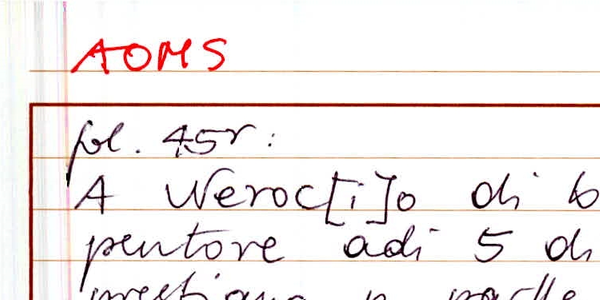 AOMS
fol. 45r:
A Weroc[i]o di
pentore adi 5 di